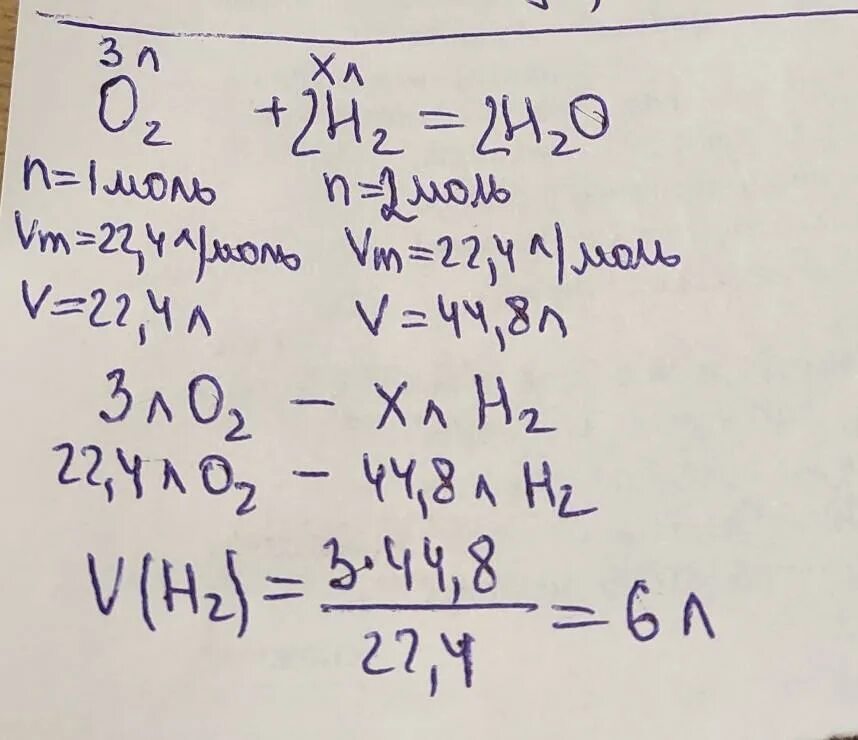 3 л х л
O₂ + 2H₂ = 2H₂O
n=1моль n=2моль
Vm=22,4 л/моль Vm=22,4 л/моль
V=22,4 л V=44,8 л
3 л O₂ – х л H₂
22,4 л O₂ – 44,8 л H₂
V(H₂) = 3·44,8 / 22,4 = 6 л